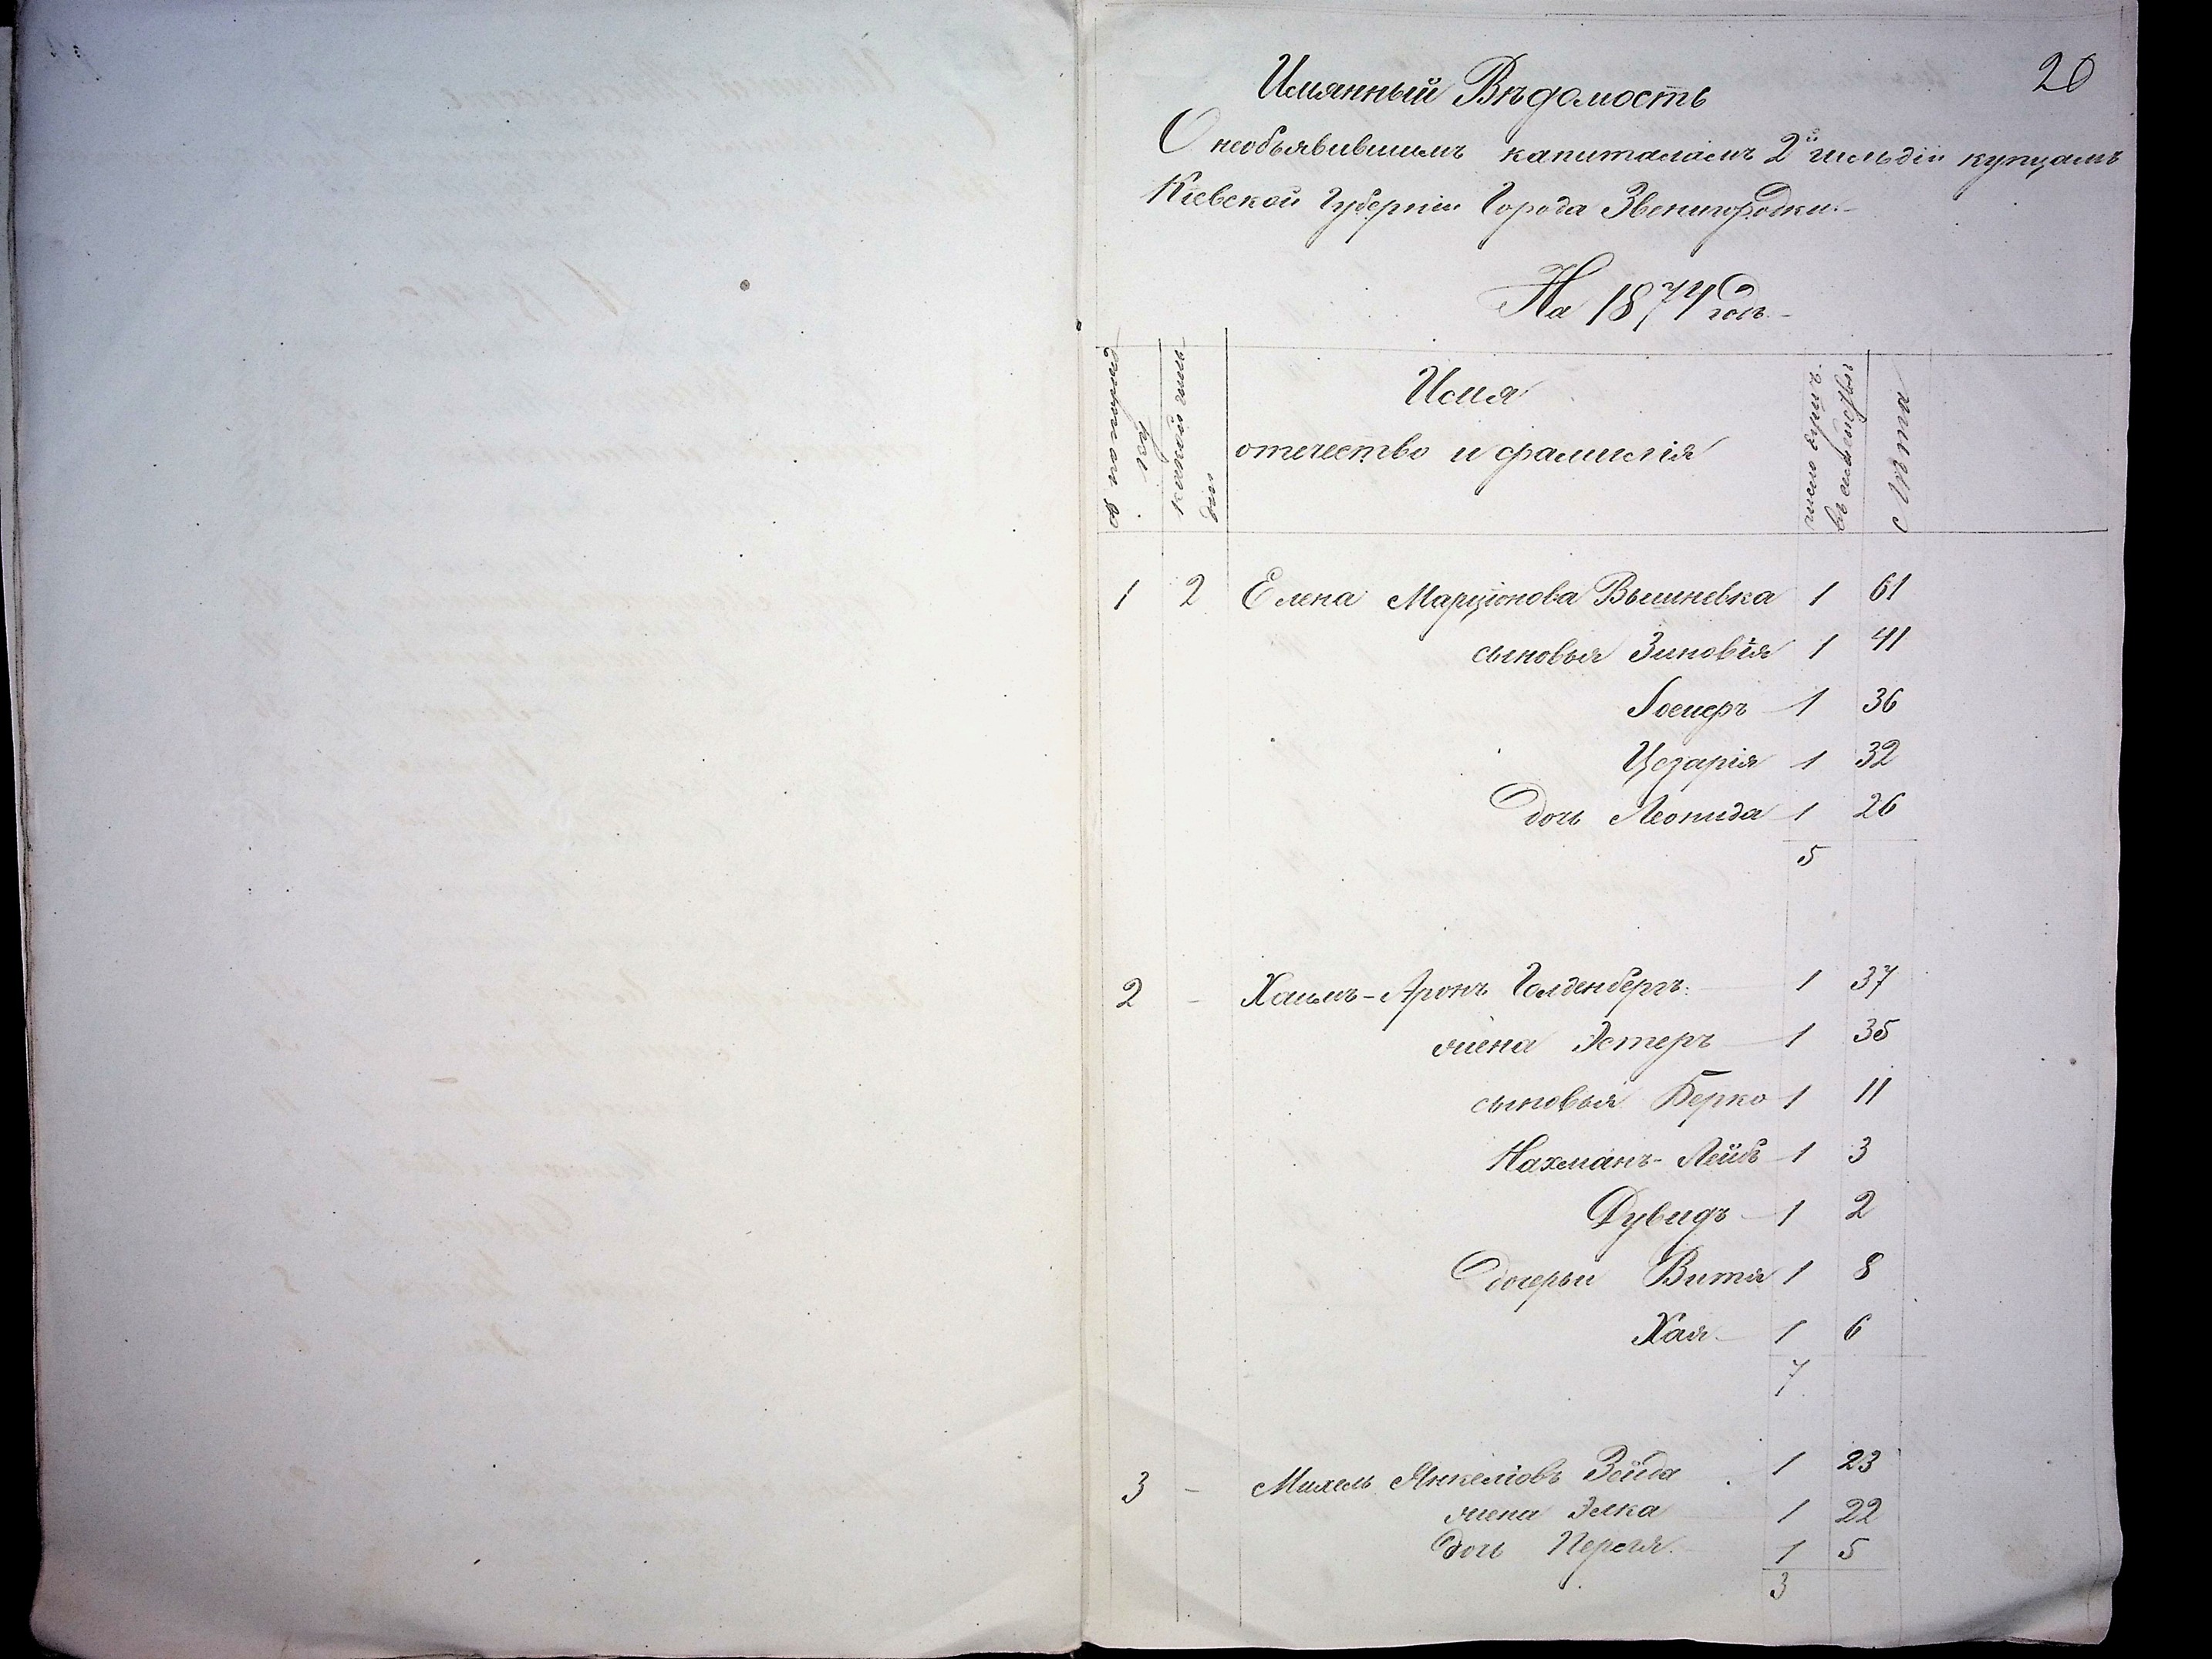 20
Имянный Вѣдомость
О необъявившимъ капиталамъ 2й гильдіи купцамъ
Кіевской Губерніи Города Звенигородки.
На 1874 годъ.
№ по поряд
ку
какой гиль
діи
Имя
отечество и фамилія
число душъ
въ семействѣ
Лѣта
1 2 Елена Марціонова Вышневска 1 61
сыновья Зиновія 1 41
1 36
Цезарія 1 32
дочь Леонида 1 26
5
2 - Хаимъ-Аронъ Голденбергъ 1 37
жена Эстеръ 1 35
сыновья Берко 1 11
Нахманъ-Лейбъ 1 3
Дувидъ 1 2
дочерьи Витя 1 8
Хая 1 6
7
3 - Михель Янкеліовъ Зейда 1 23
жена Элка 1 22
дочь Перля 1 5
3